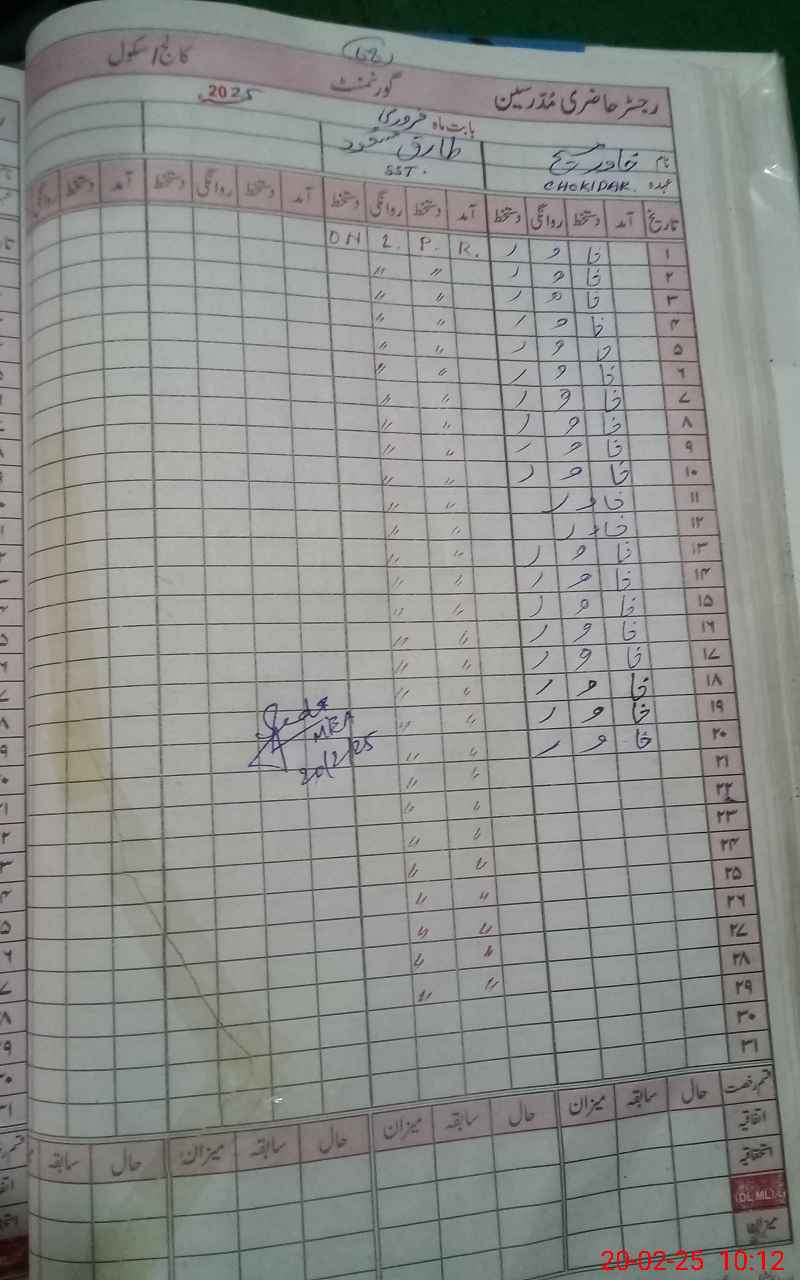 62
رجسٹر حاضری مدرسین گورنمنٹ کالج / سکول
بابت ماہ فروری 2025
نام خاور مسیح طارق
عہدہ CHOKIDAR. SST.
تاریخ آمد دستخط روانگی دستخط آمد دستخط روانگی دستخط آمد دستخط روانگی دستخط آمد دستخط روانگی
۱ خا و ر R. P. 2. ON
۲ خا و ر " "
۳ خا و ر " "
۴ خا و ر " "
۵ خا و ر " "
۶ خا و ر " "
۷ خا و ر " "
۸ خا و ر " "
۹ خا و ر " "
۱۰ خا و ر " "
۱۱ خاور " "
۱۲ خاور " "
۱۳ خا و ر " "
۱۴ خا و ر " "
۱۵ خا و ر " "
۱۶ خا و ر " "
۱۷ خا و ر " "
۱۸ خا و ر " "
۱۹ خا و ر " "
۲۰ خا و ر " "
۲۱ " "
۲۲ " "
۲۳ " "
۲۴ " "
۲۵ " "
۲۶ " "
۲۷ " "
۲۸ " "
۲۹ " "
۳۰
۳۱
MEA
20/2/25
قسم رخصت حال سابقہ میزان حال سابقہ میزان حال سابقہ میزان حال سابقہ
اتفاقیہ
استحقاقیہ
(DL, ML)
میزان
20-02-25 10:12